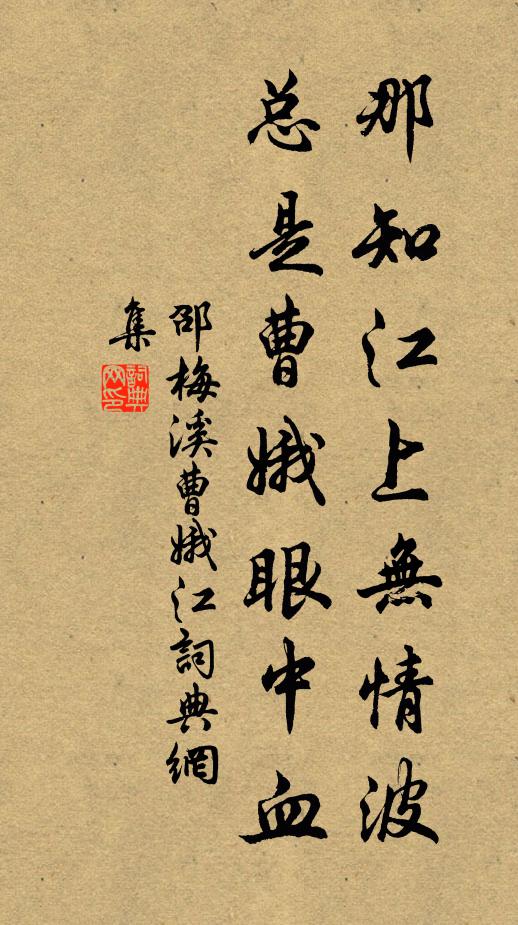 那知江上無情波
总是曹娥眼中血
邵梅溪曹娥江詞典網
集
詞典
网印